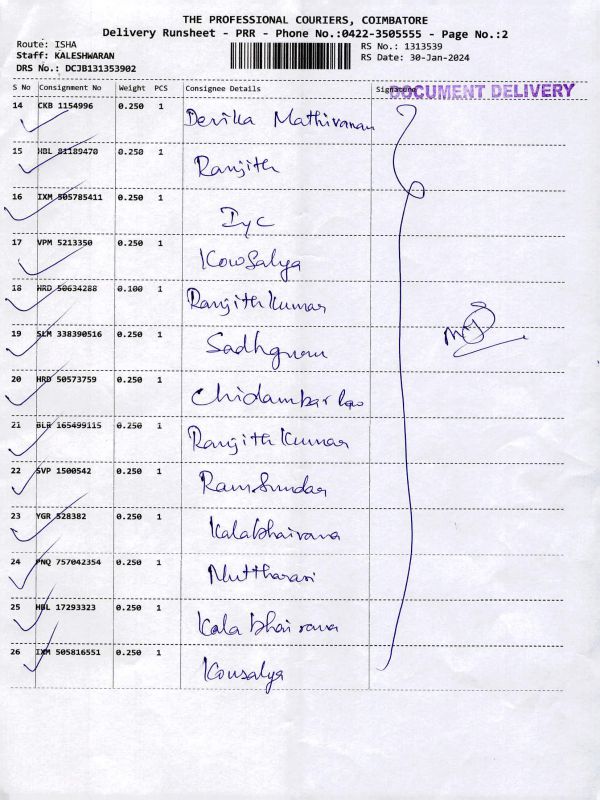 THE PROFESSIONAL COURIERS, COIMBATORE
Delivery Runsheet - PRR - Phone No.:0422-3505555 - Page No.:2
Route: ISHA
RS No.: 1313539
Staff: KALESHWARAN
RS Date: 30-Jan-2024
DRS No.: DCJB131353902
S No Consignment No Weight PCS Consignee Details Signature
DOCUMENT DELIVERY
14 CKB 1154996 0.250 1 Devika Mathivanan
15 HBL 81189470 0.250 1 Ranjith
16 IXM 505785411 0.250 1 Iyc
17 VPM 5213350 0.250 1 Kowsalya
18 HRD 50634288 0.100 1 Ranjith Kumar
19 SLM 338390516 0.250 1 Sadhguru
20 HRD 50573759 0.250 1 Chidambar Rao
21 BLR 165499115 0.250 1 Ranjith Kumar
22 SVP 1500542 0.250 1 Ram Sundar
23 YGR 528382 0.250 1 Kalabhairava
24 PNQ 757042354 0.250 1 Muttharasi
25 HBL 17293323 0.250 1 Kala bhairava
26 IXM 505816551 0.250 1 Kousalya